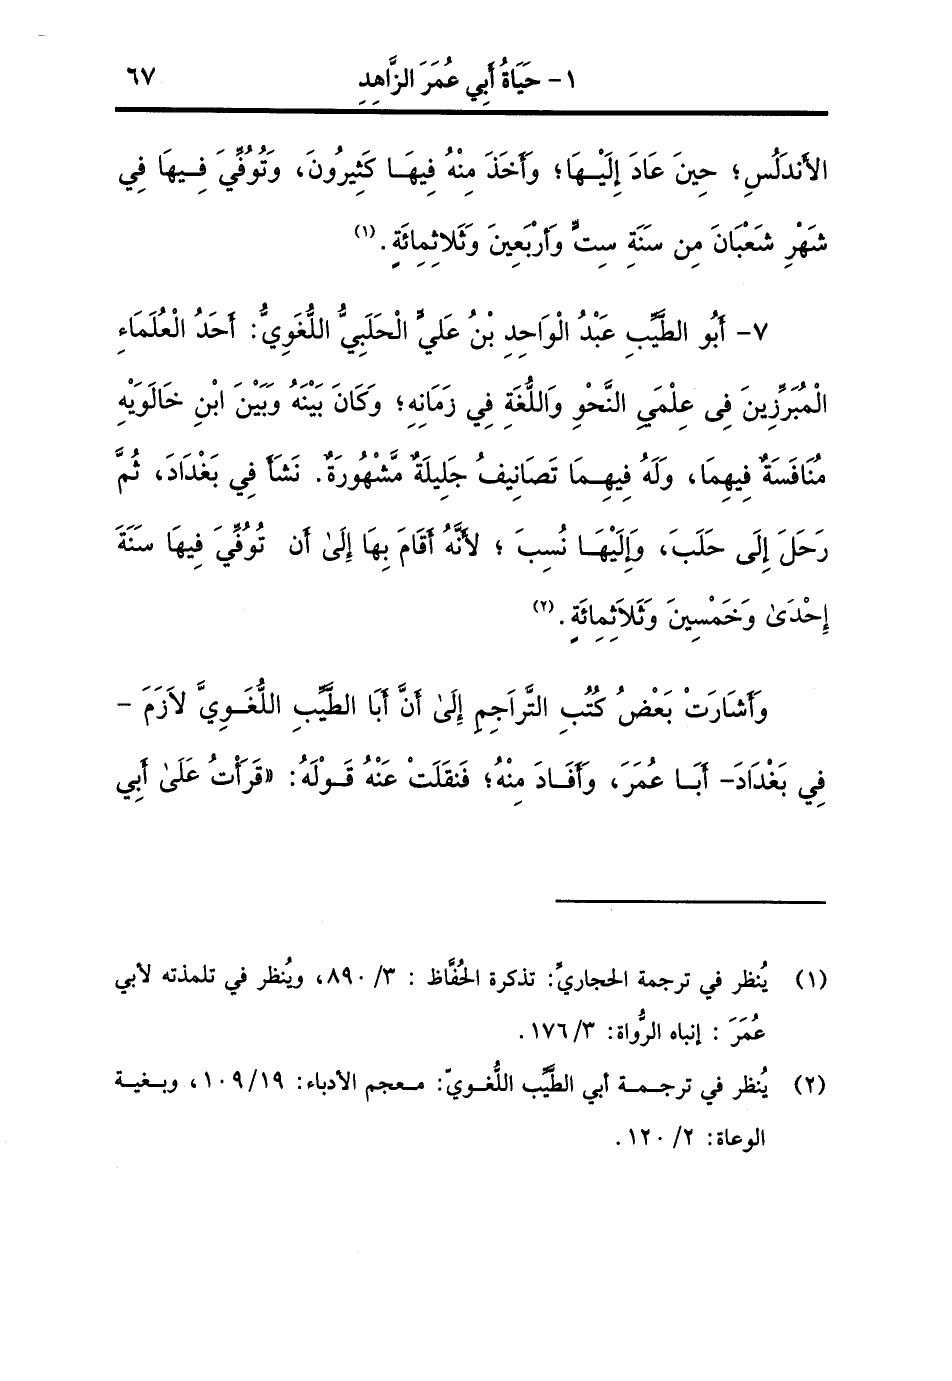 ١- حَيَاةُ أَبِي عُمَرَ الزَّاهِدِ ٦٧
الأَندَلُسِ؛ حِينَ عَادَ إِلَيْهَا؛ وَأَخَذَ مِنْهُ فِيهَا كَثِيرُونَ، وَتُوُفِّيَ فِيهَا فِي
شَهْرِ شَعْبَانَ مِن سَنَةِ سِتٍّ وَأَرْبَعِينَ وَثَلاثِمِائَةٍ.(١)
٧- أَبُو الطَّيِّبِ عَبْدُ الْوَاحِدِ بْنُ عَلِيٍّ الْحَلَبِيُّ اللُّغَوِيُّ: أَحَدُ الْعُلَمَاءِ
الْمُبَرِّزِينَ فِى عِلْمَيِ النَّحْوِ وَاللُّغَةِ فِي زَمَانِهِ؛ وَكَانَ بَيْنَهُ وَبَيْنَ ابْنِ خَالَوَيْهِ
مُنَافَسَةٌ فِيهِمَا، وَلَهُ فِيهِمَا تَصَانِيفُ جَلِيلَةٌ مَّشْهُورَةٌ. نَشَأَ فِي بَغْدَادَ، ثُمَّ
رَحَلَ إِلَى حَلَبَ، وَإِلَيْهَا نُسِبَ ؛ لأَنَّهُ أَقَامَ بِهَا إِلَىٰ أَن تُوُفِّيَ فِيهَا سَنَةَ
إِحْدَىٰ وَخَمْسِينَ وَثَلاَثِمِائَةٍ.(٢)
وَأَشَارَتْ بَعْضُ كُتُبِ التَّرَاجِمِ إِلَىٰ أَنَّ أَبَا الطَّيِّبِ اللُّغَوِيَّ لاَزَمَ -
فِي بَغْدَادَ- أَبَا عُمَرَ، وَأَفَادَ مِنْهُ؛ فَنقَلَتْ عَنْهُ قَوْلَهُ: «قَرَأْتُ عَلَىٰ أَبِي
(١) يُنظر في ترجمة الحجاريِّ: تذكرة الحُفَّاظ : ٣/ ٨٩٠، ويُنظر في تلمذته لأبي
عُمَرَ : إنباه الرُّواة: ٣/ ١٧٦.
(٢) يُنظر في ترجمة أبي الطَّيِّب اللُّغويّ: معجم الأدباء: ١٩/ ١٠٩، وبغية
الوعاة: ٢/ ١٢٠.